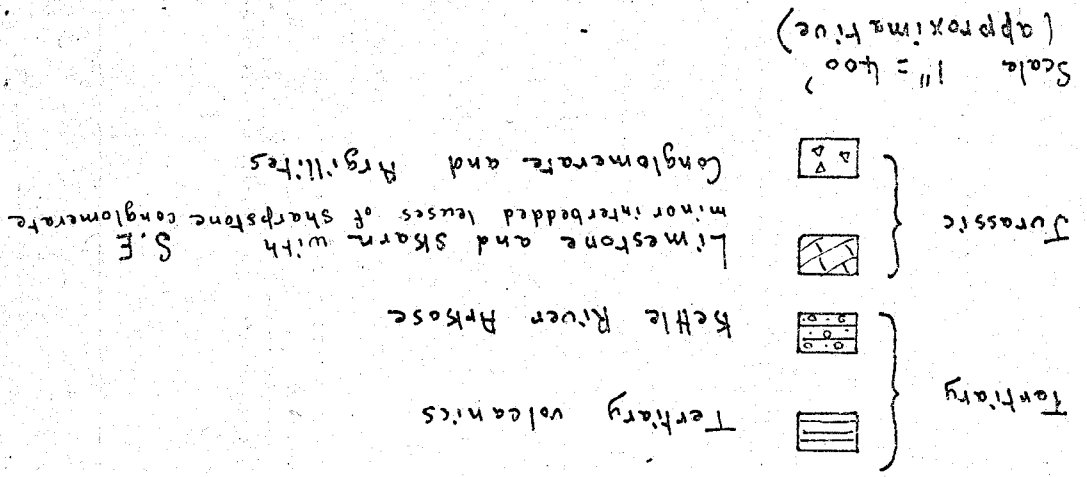 Tertiary
Tertiary volcanics
Kettle River Arkose
Jurassic
Limestone and Skarn with S.E
minor interbedded leuses of sharpstone conglomerate
Conglomerate and Argillites
Scale 1" = 400'
(approximative)